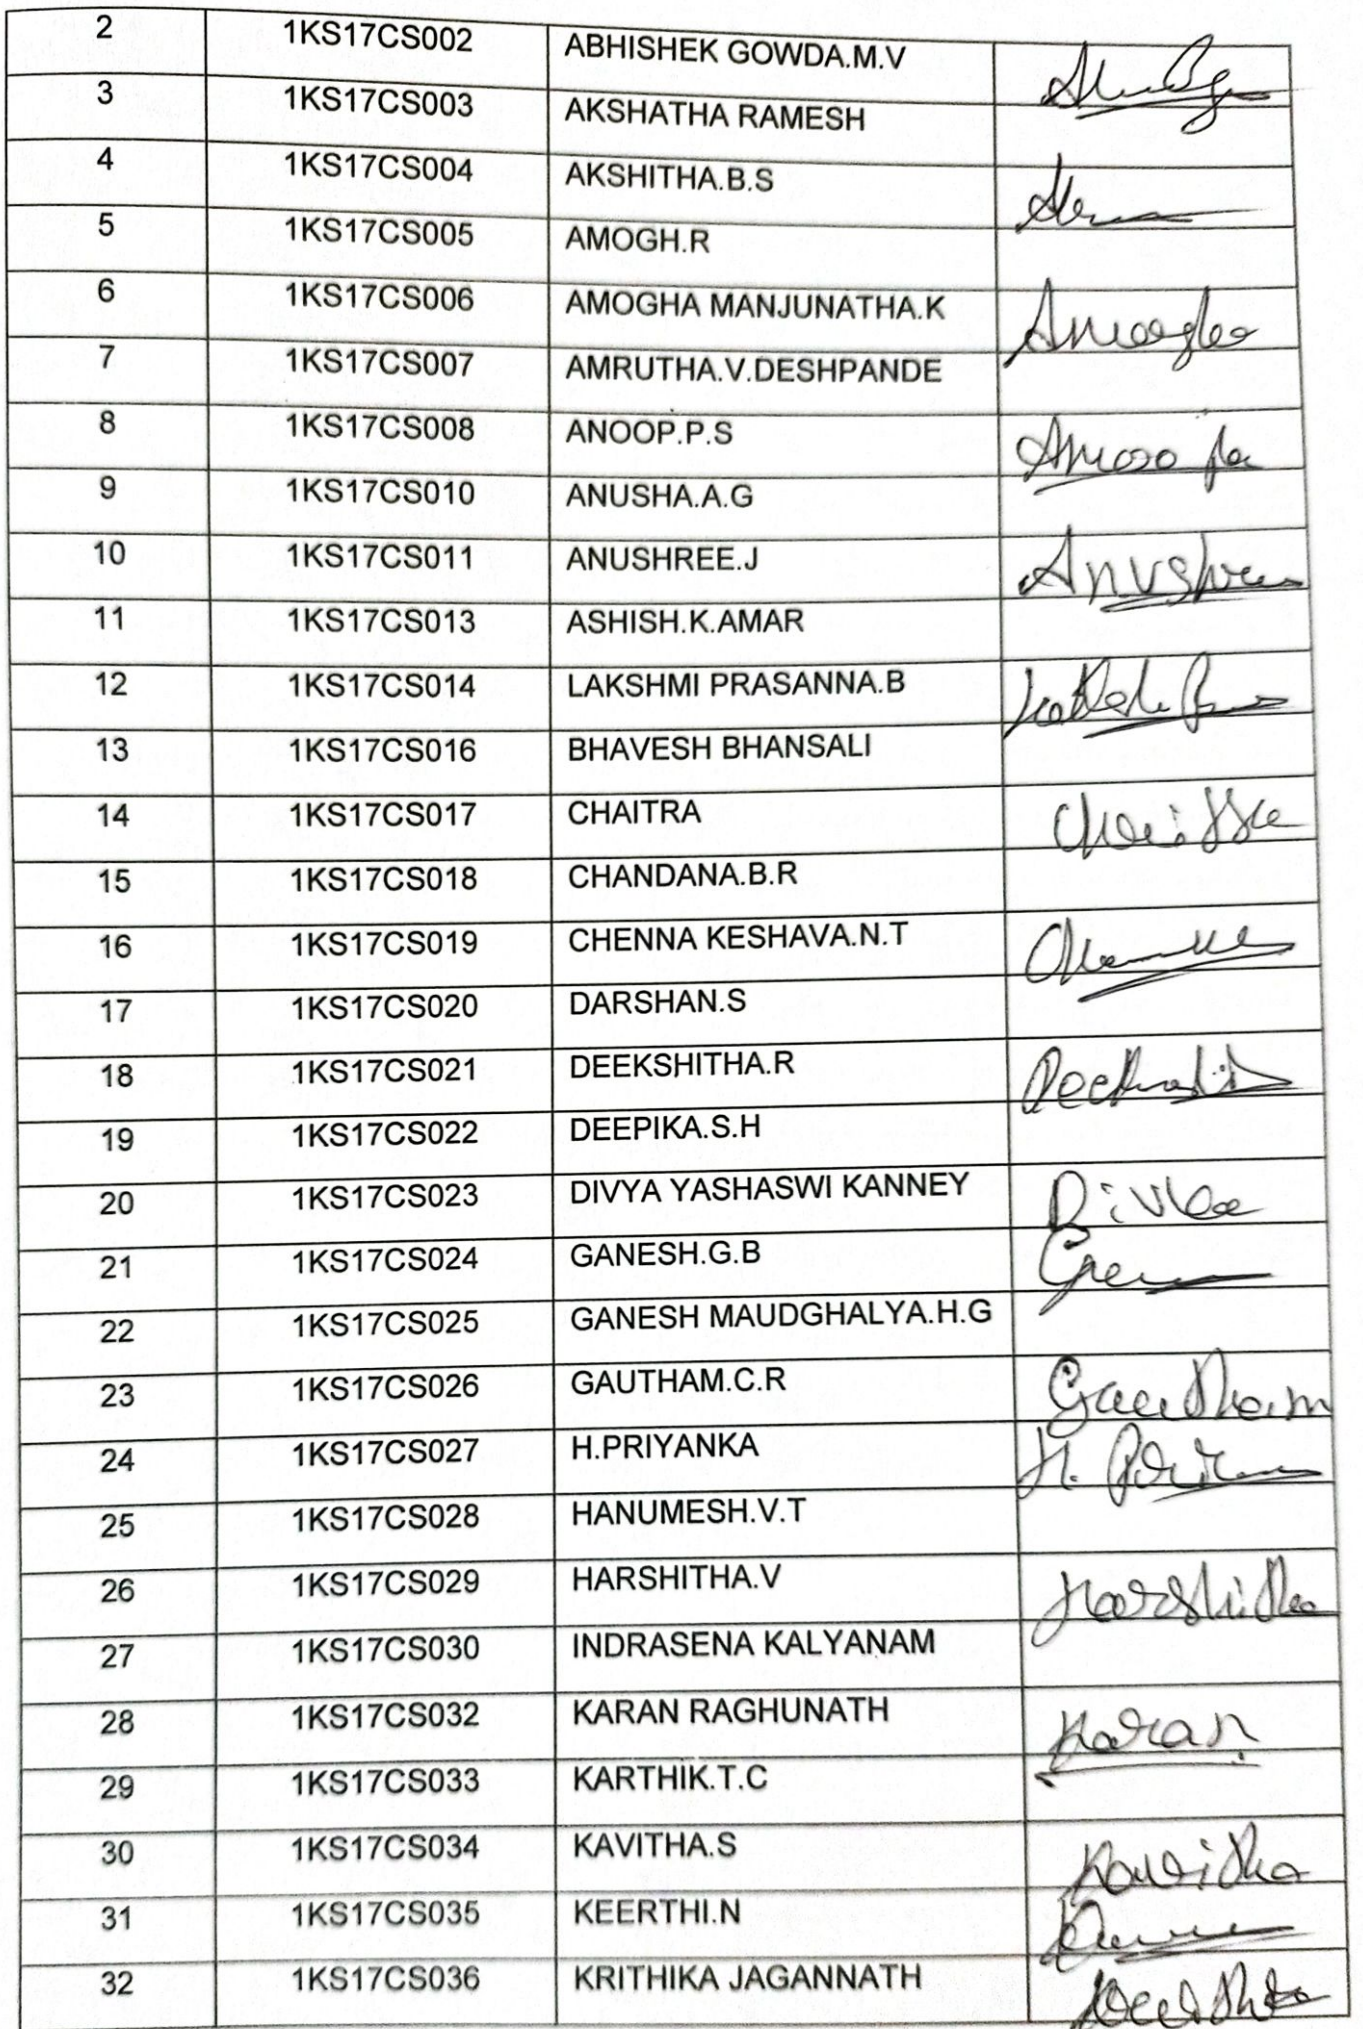 2 1KS17CS002 ABHISHEK GOWDA.M.V
3 1KS17CS003 AKSHATHA RAMESH
4 1KS17CS004 AKSHITHA.B.S
5 1KS17CS005 AMOGH.R
6 1KS17CS006 AMOGHA MANJUNATHA.K Amogha
7 1KS17CS007 AMRUTHA.V.DESHPANDE
8 1KS17CS008 ANOOP.P.S
9 1KS17CS010 ANUSHA.A.G
10 1KS17CS011 ANUSHREE.J Anushree
11 1KS17CS013 ASHISH.K.AMAR
12 1KS17CS014 LAKSHMI PRASANNA.B
13 1KS17CS016 BHAVESH BHANSALI
14 1KS17CS017 CHAITRA Chaitra
15 1KS17CS018 CHANDANA.B.R
16 1KS17CS019 CHENNA KESHAVA.N.T
17 1KS17CS020 DARSHAN.S
18 1KS17CS021 DEEKSHITHA.R
19 1KS17CS022 DEEPIKA.S.H
20 1KS17CS023 DIVYA YASHASWI KANNEY Divya
21 1KS17CS024 GANESH.G.B
22 1KS17CS025 GANESH MAUDGHALYA.H.G
23 1KS17CS026 GAUTHAM.C.R Gautham
24 1KS17CS027 H.PRIYANKA
25 1KS17CS028 HANUMESH.V.T
26 1KS17CS029 HARSHITHA.V Harshitha
27 1KS17CS030 INDRASENA KALYANAM
28 1KS17CS032 KARAN RAGHUNATH Karan
29 1KS17CS033 KARTHIK.T.C
30 1KS17CS034 KAVITHA.S Kavitha
31 1KS17CS035 KEERTHI.N
32 1KS17CS036 KRITHIKA JAGANNATH